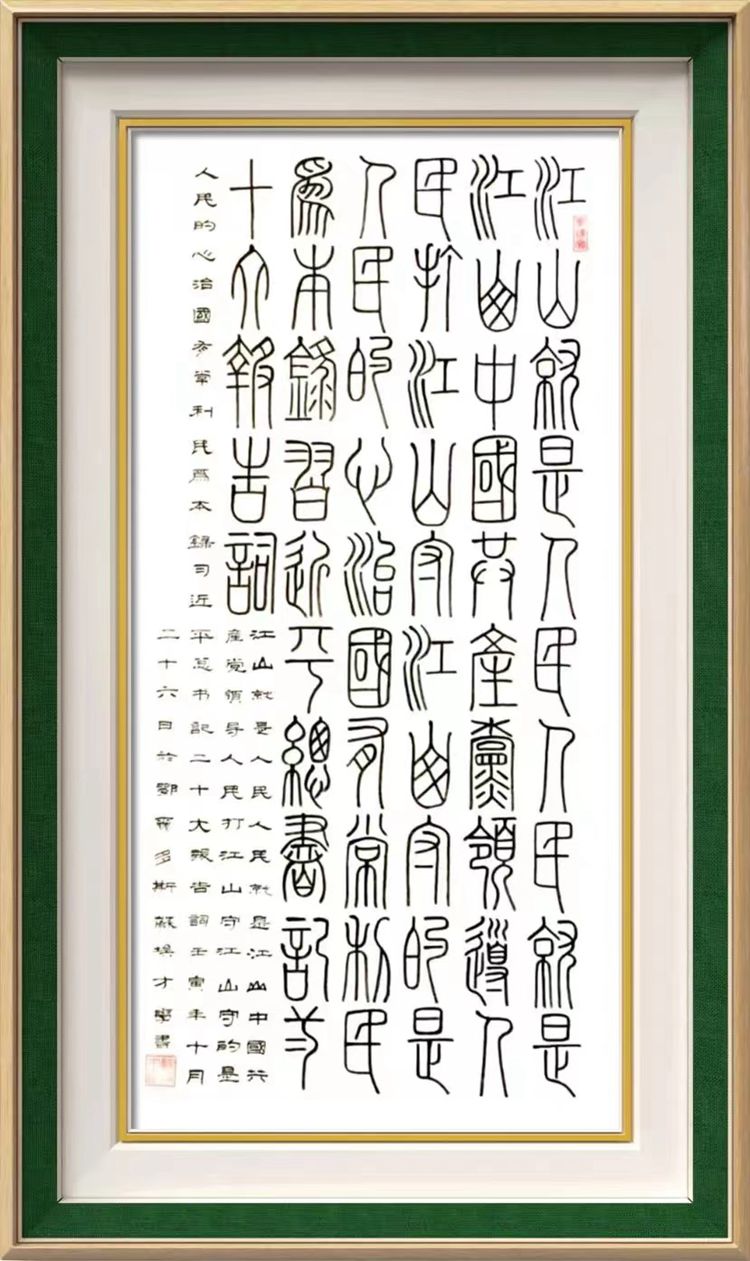 江山就是人民人民就是
江山中國共產黨領導人
民打江山守江山守的是
人民的心治國有常利民
爲本錄習近平總書記二
十大報告詞
江山就是人民人民就是江山中國共
産党領导人民打江山守江山守的是
人民的心治國有常利民爲本錄习近平总书记二十大報告詞壬寅年十月
二十六日於鄂爾多斯蘇埃才學書